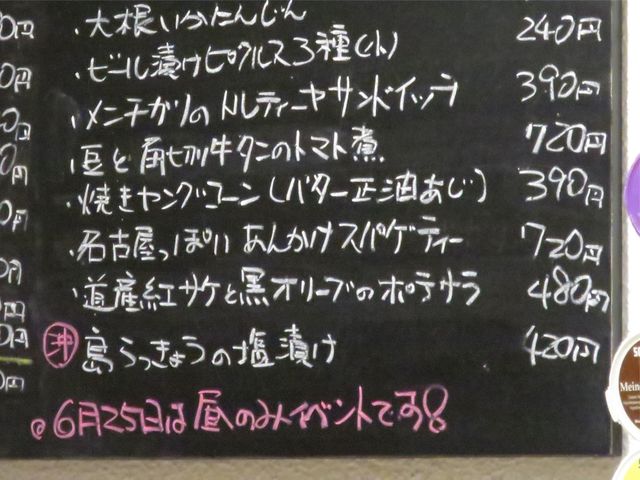 ・大根いかたんじん 240円
・ビール漬けピクルス3種(小) 390円
・メンチカツのトルティーヤサンドイッチ 720円
・豆と角切り牛タンのトマト煮 390円
・焼きヤングコーン(バター正油あじ) 720円
・名古屋っぽいあんかけスパゲティー 480円
・道産紅サケと黒オリーブのポテサラ 420円
沖 島らっきょうの塩漬け
◎6月25日は昼のみイベントです!
Mein